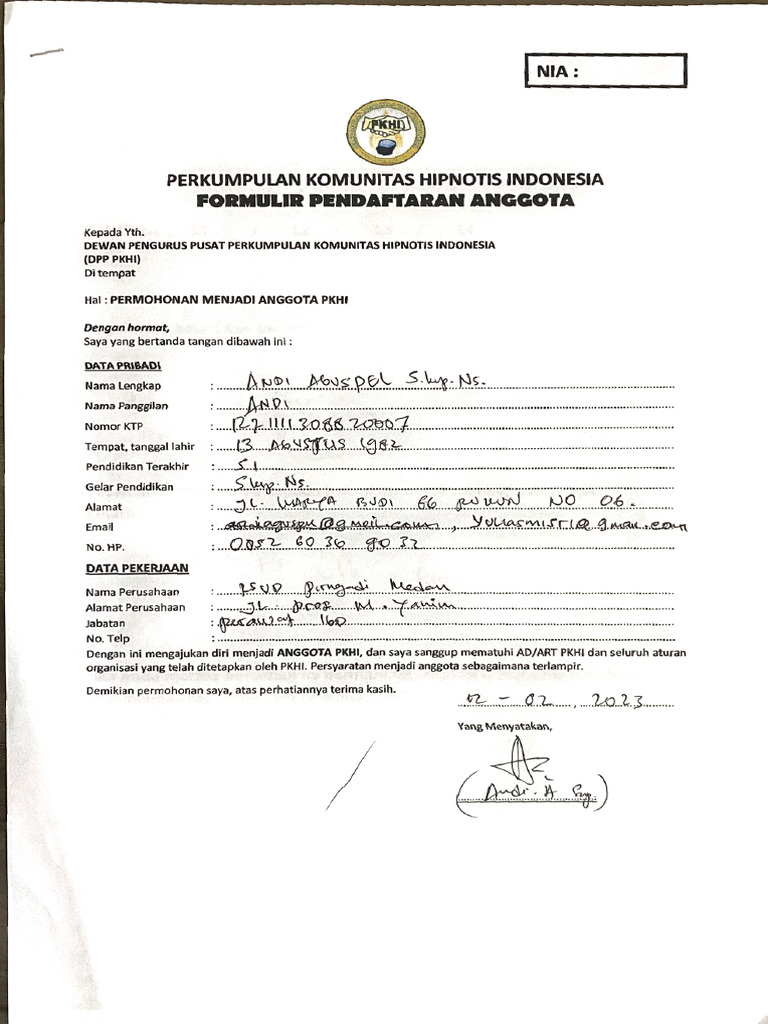 NIA :
PKHI
PERKUMPULAN KOMUNITAS HIPNOTIS INDONESIA
FORMULIR PENDAFTARAN ANGGOTA
Kepada Yth.
DEWAN PENGURUS PUSAT PERKUMPULAN KOMUNITAS HIPNOTIS INDONESIA
(DPP PKHI)
Di tempat
Hal : PERMOHONAN MENJADI ANGGOTA PKHI
Dengan hormat,
Saya yang bertanda tangan dibawah ini :
DATA PRIBADI
Nama Lengkap : ANDI AGUSPEL S.kep.Ns.
Nama Panggilan : ANDI
Nomor KTP : 1271111308820007
Tempat, tanggal lahir : 13 AGUSTUS 1982
Pendidikan Terakhir : S1
Gelar Pendidikan : S.kep.Ns.
Alamat : JL. KARYA BUDI GG RUKUN NO 06.
Email : , yuliasmisri@gmail.com
No. HP. : 0852 6036 9032
DATA PEKERJAAN
Nama Perusahaan : RSUD Pirngadi Medan
Alamat Perusahaan : JL. prof M. Yamin
Jabatan : perawat IGD
No. Telp :
Dengan ini mengajukan diri menjadi ANGGOTA PKHI, dan saya sanggup mematuhi AD/ART PKHI dan seluruh aturan
organisasi yang telah ditetapkan oleh PKHI. Persyaratan menjadi anggota sebagaimana terlampir.
Demikian permohonan saya, atas perhatiannya terima kasih.
02 - 02 , 2023
Yang Menyatakan,
(Andi. A )